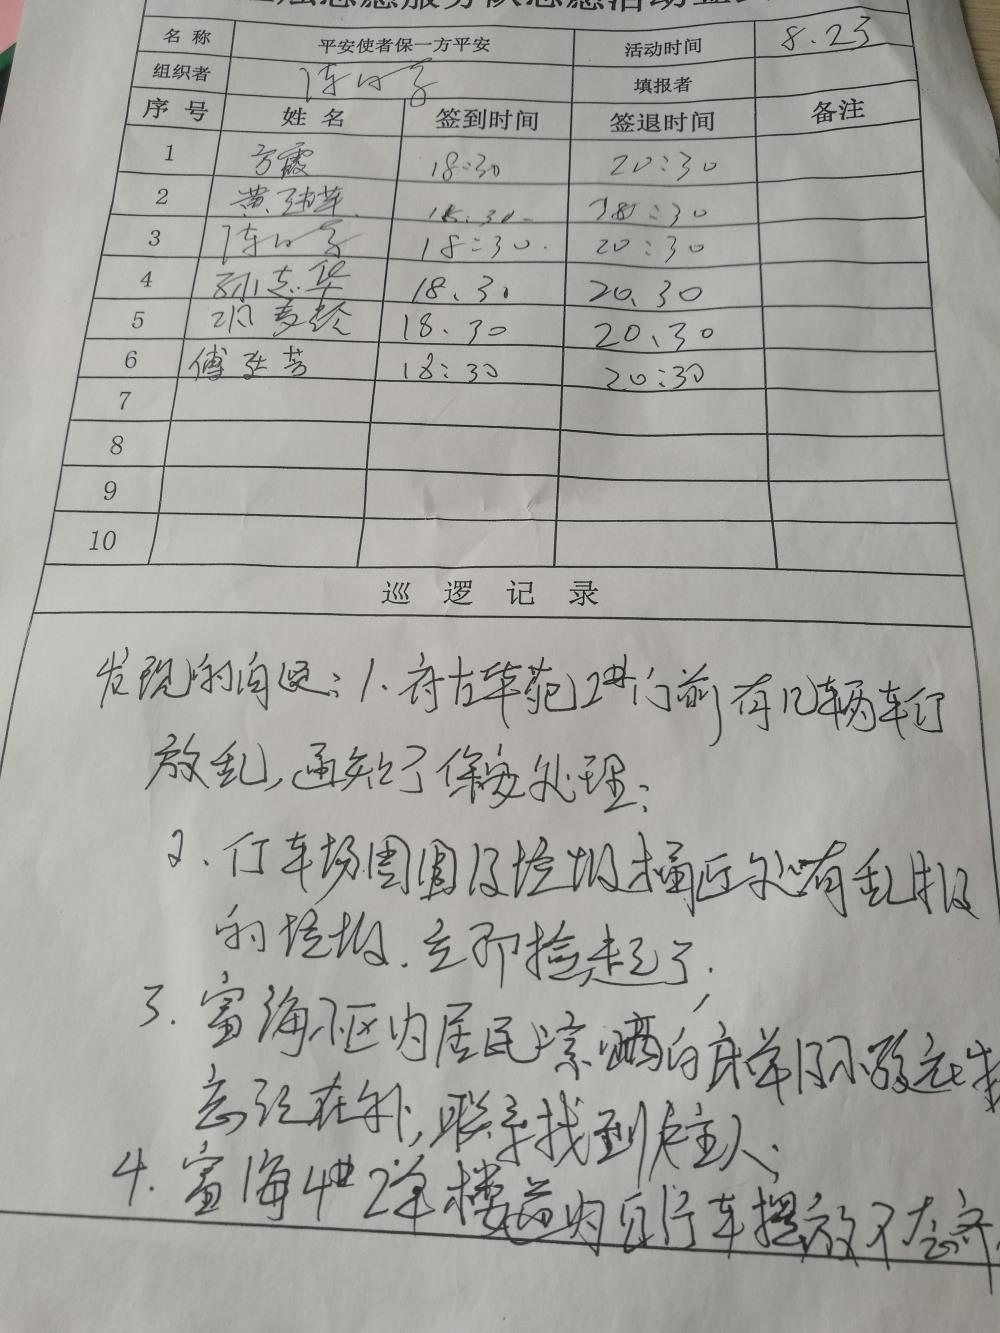 志愿服务队志愿活动
名 称 平安使者保一方平安 活动时间 8.23
组织者 填报者
序 号 姓 名 签到时间 签退时间 备注
1 方霞 18:30 20:30
2 18.30 18:30
3 18:30. 20:30
4 孙志华 18.30 20.30
5 18.30 20.30
6 傅 芳 18:30 20:30
7
8
9
10
巡 逻 记 录
发现的问题: 1. 府古华苑2#门前有几辆车停
放乱,通知了保安处理;
2. 停车场周围及垃圾桶边处有乱投
的垃圾.立即捡走了.
3. 富海小区内居民凉晒的床单
忘记在外,联系找到失主人;
4. 富海4#2单楼道内自行车摆放不太齐